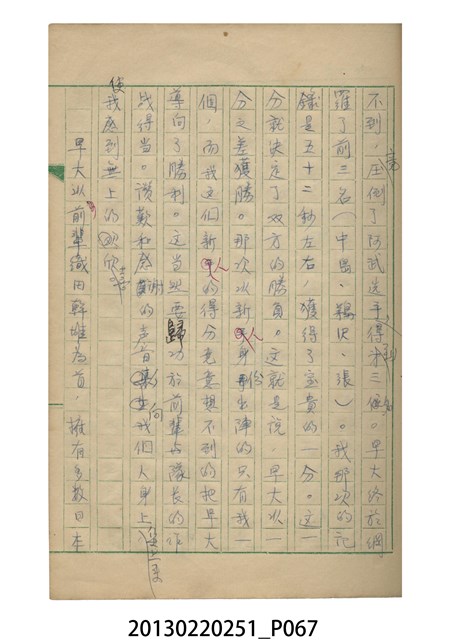 不到，倒了阿武選手得第三。早大終於網
羅了前三名（中島、鵜沢、張）。我那次的記
錄是五十二秒左右，獲得了宝貴的一分。这一
分就決定了双方的勝負。这就是說，早大以一
分之差獲勝。那次以新人身份出陣的只有我一
個，而我这個新人的得分竟意想不到的把早大
導向了勝利。这当然要歸功於前輩与隊長的作
战得当。讚歎和感謝的声音向我個人身上
使我感到無上的欣喜
早大以前輩織田幹雄為首，擁有多数日本
20130220251_P067